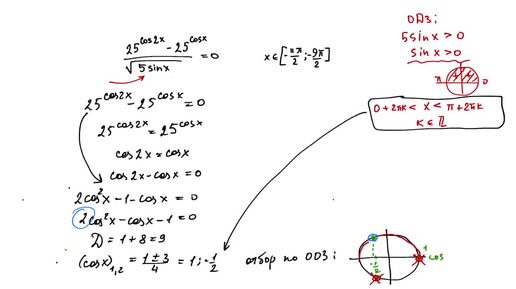 (25^cos2x - 25^cosx) / √(5sinx) = 0
x ∈ [-11π/2 ; -9π/2]
ОДЗ:
5sinx > 0
sinx > 0
π 0
0+2πk < x < π+2πk
k ∈ ℤ
25^cos2x - 25^cosx = 0
25^cos2x = 25^cosx
cos2x = cosx
cos2x - cosx = 0
2cos²x - 1 - cosx = 0
2cos²x - cosx - 1 = 0
D = 1+8 = 9
(cosx)₁,₂ = (1±3)/4 = 1 ; -1/2
отбор по ОДЗ:
1
cos
-1/2